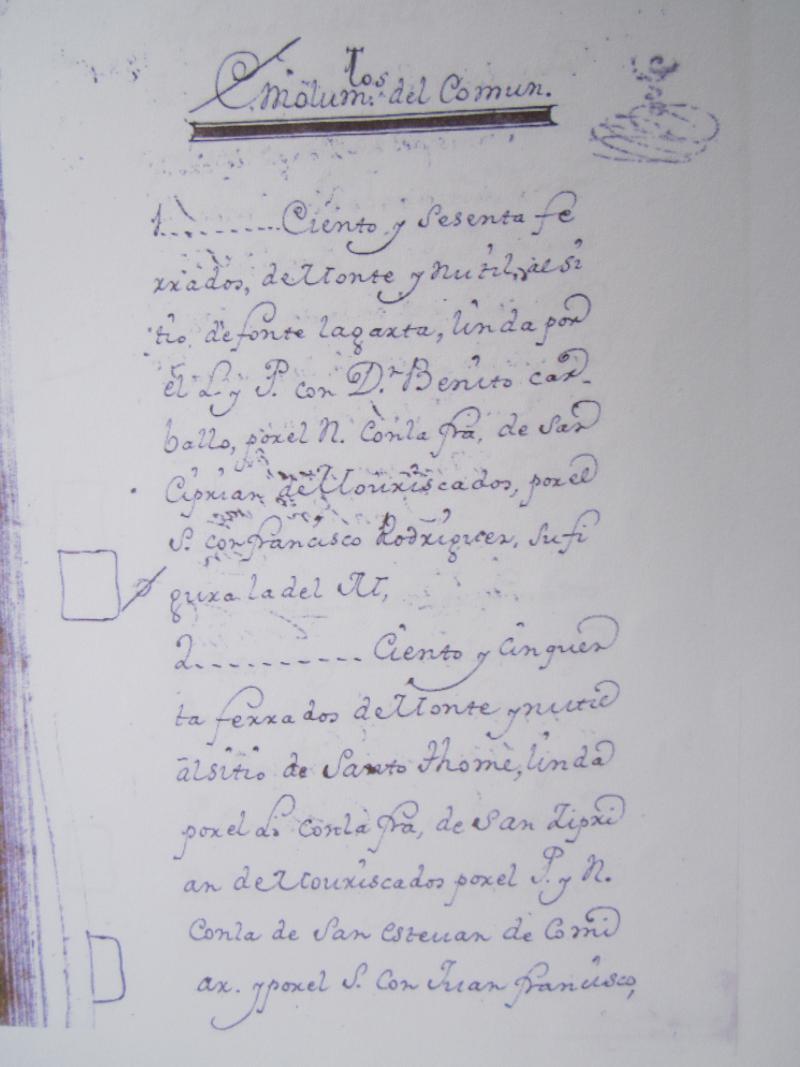 Emolum.tos del Comun.
1.......... Ciento y sesenta fe
rrados, de Monte ynutil, al si
tio de fonte lagarta, linda por
el L. y P. con D.n Benito car-
ballo, porel N. Conla fra, de San
Ciprian de Mouriscados, porel
S. con francisco Rodriguez, sufi
gura ladel M,
2............ Ciento y Cinquen
ta ferrados de Monte ynutil
alsitio de Santo thome, linda
porel L. conla fra, de San Zipri
an de Mouriscados porel P. y N.
Conla de San Estevan de Comi
ar. yporel S. Con Juan francisco,